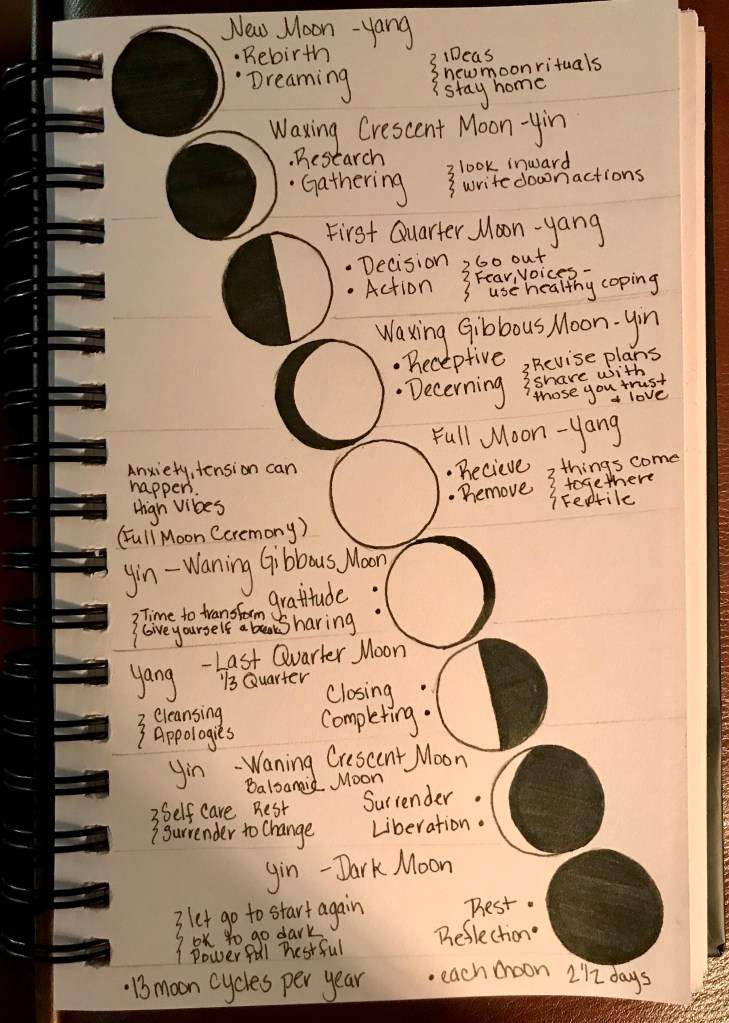 New Moon - yang
• Rebirth
• Dreaming
ideas
new moon rituals
stay home
Waxing Crescent Moon - yin
• Research
• Gathering
look inward
write down actions
First Quarter Moon - yang
• Decision
• Action
Go out
Fear, Voices -
use healthy coping
Waxing Gibbous Moon - yin
• Receptive
• Decerning
Revise plans
share with
those you trust
+ love
Full Moon - yang
• Recieve
• Remove
things come
togethere
Fertile
Anxiety, tension can
happen.
High Vibes
(Full Moon Ceremony)
yin - Waning Gibbous Moon
gratitude •
Sharing •
Time to transform
Give yourself a break
yang - Last Quarter Moon
1/3 Quarter
Closing •
Completing •
Cleansing
Appologies
yin - Waning Crescent Moon
Balsamic Moon
Surrender •
Liberation •
Self Care Rest
Surrender to Change
yin - Dark Moon
Rest •
Reflection •
let go to start again
ok to go dark
Powerful Restful
• 13 moon cycles per year
• each moon 2 1/2 days